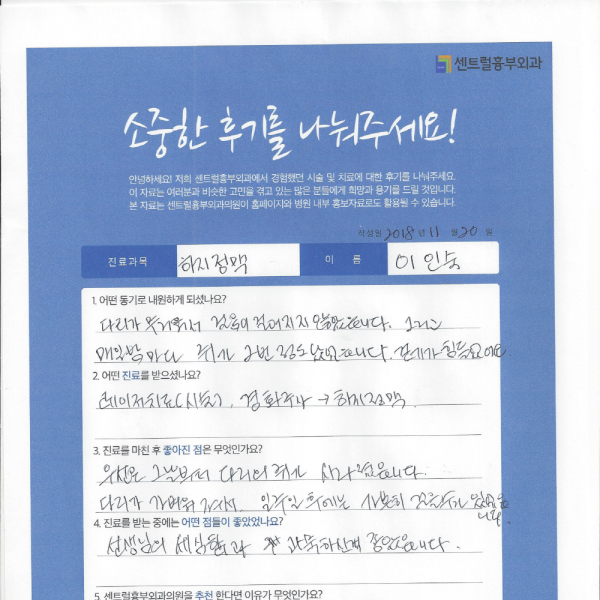 센트럴흉부외과
소중한 후기를 나눠주세요!
안녕하세요! 저희 센트럴흉부외과에서 경험했던 시술 및 치료에 대한 후기를 나눠주세요.
이 자료는 여러분과 비슷한 고민을 겪고 있는 많은 분들에게 희망과 용기를 드릴 것입니다.
본 자료는 센트럴흉부외과의원이 홈페이지와 병원 내부 홍보자료로도 활용될 수 있습니다.
작성일 2018 년 11 월 20 일
진료과목 하지정맥 이 름 이인숙
1. 어떤 동기로 내원하게 되셨나요?
다리가 무거워서 걸음이 걸어지지 않았습니다. 그리고
매일밤마다 쥐가 2번 정도 났습니다.
2. 어떤 진료를 받으셨나요?
레이저치료(시술), 경화주사 → 하지정맥
3. 진료를 마친 후 좋아진 점은 무엇인가요?
우선은 그날부터 다리의 쥐가 사라졌습니다.
다리가 가벼워 일주일 후에는 사뿐히 걸을수가 있었습니다.
4. 진료를 받는 중에는 어떤 점들이 좋았었나요?
선생님의 세심함과 과 좋았습니다.
5. 센트럴흉부외과의원을 추천 한다면 이유가 무엇인가요?